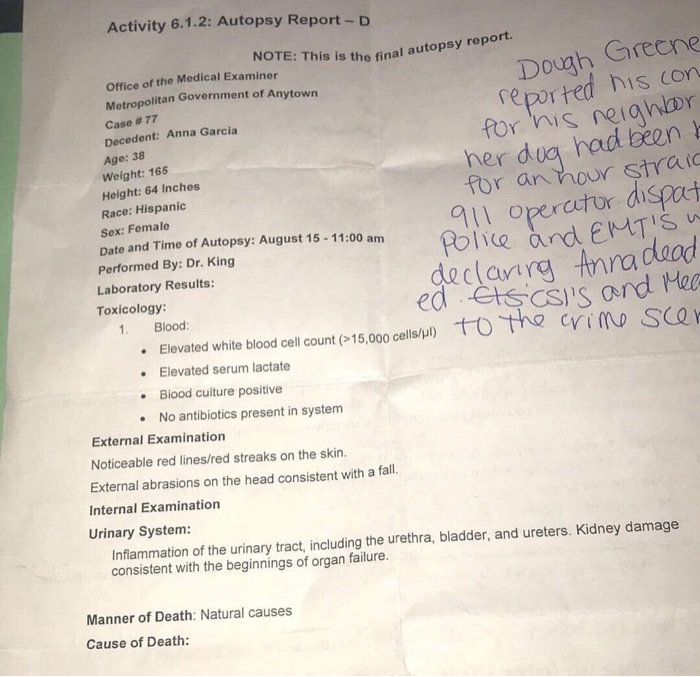 Activity 6.1.2: Autopsy Report – D
NOTE: This is the final autopsy report.
Office of the Medical Examiner
Metropolitan Government of Anytown
Case # 77
Decedent: Anna Garcia
Age: 38
Weight: 165
Height: 64 Inches
Race: Hispanic
Sex: Female
Date and Time of Autopsy: August 15 - 11:00 am
Performed By: Dr. King
Laboratory Results:
Toxicology:
1. Blood:
• Elevated white blood cell count (>15,000 cells/µl)
• Elevated serum lactate
• Blood culture positive
• No antibiotics present in system
External Examination
Noticeable red lines/red streaks on the skin.
External abrasions on the head consistent with a fall.
Internal Examination
Urinary System:
Inflammation of the urinary tract, including the urethra, bladder, and ureters. Kidney damage
consistent with the beginnings of organ failure.
Manner of Death: Natural causes
Cause of Death:
Dough Greene
reported his con
for his neighbor
her dog had been
for an hour straig
911 operator dispat
Police and EMT'S
declaring Anna dead
ed. CSI'S and Med
to the crime scen